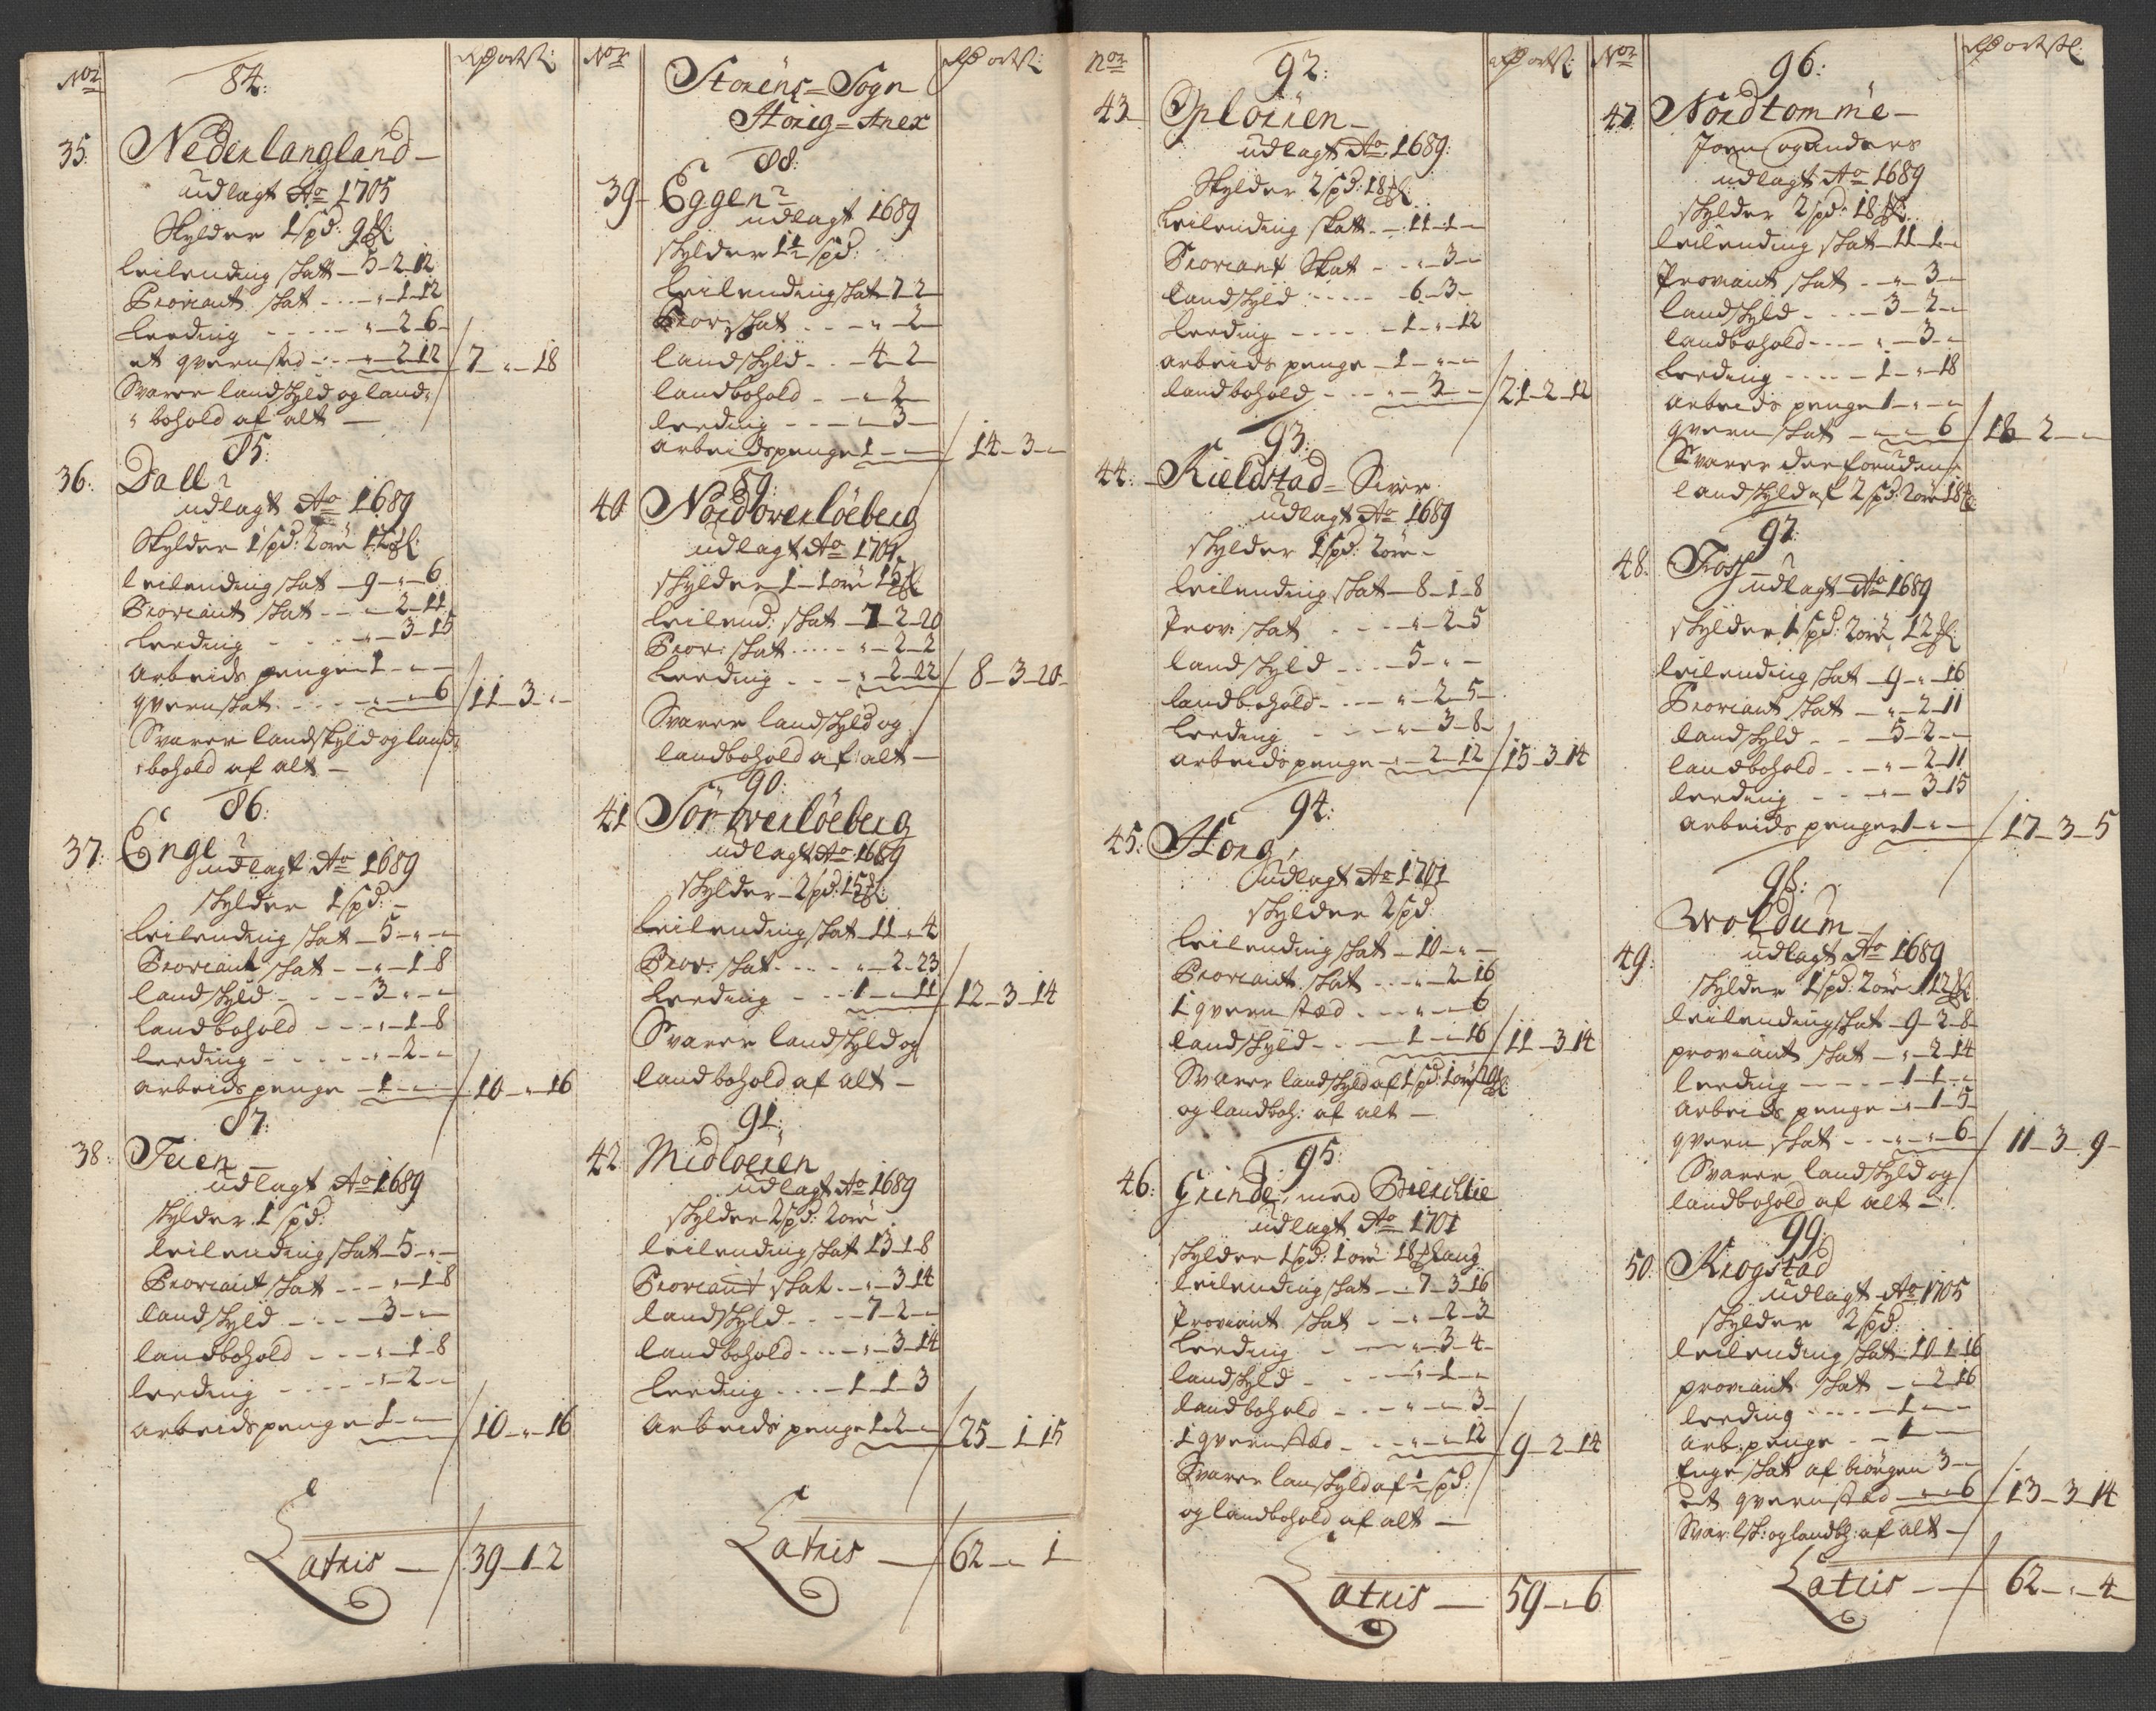 No:
84:
35: Nederlangland
udlagt Ao 1705
Skylder 1 spd: 9 ℔:
leilending skatt 5-2-12
Proviant skat - " - 1-12
Leeding - " - 2-6
et qvernsted - " - 2-12 / 7 - " - 18
Svarer landskyld og land-
bohold af alt
85:
36: Dall
udlagt Ao 1689
Skylder 1 spd: 2 öre 12 ℔:
leilending skat - 9 - " - 6
Proviant skat - " - 2-11
Leeding - " - 3-15
Arbeids penge 1 - " -
qvernskat - " - " - 6 / 11-3 - "
Svarer landskyld og land-
bohold af alt
86:
37: Engl
udlagt Ao 1689
skylder 1 spd:
Leilending skat - 5 - " - "
Proviant skat - " - 1-8
landskyld - 3 - " - "
landbohold - " - 1-8
Leeding - " - 2 - "
Arbeids penge - 1 - " - / 10 - " - 16
87:
38: Teien
udlagt Ao 1689
skylder 1 spd:
leilending skat - 5 - " -
Proviant skat - " - 1-8
landskyld - 3 - "
landbohold - " - 1-8
leeding - " - 2 - "
Arbeids penge 1 - " / 10 - " - 16
Latris / 39-1-2
No:
Storens-Sogn
Horig-Anex
88:
39 Eggen
udlagt 1689
skylder 1½ spd:
Leilending skat 7-2
Prov: skat - " - 2
landskyld - 4-2
landbohold - " - 2
leeding - " - 3
Arbeids penge 1 - " / 14-3 - "
89:
40 Nordoverlöeberg
udlagt Ao 1701
skylder 1 - 1 öre 15 ℔
leilend: skat - 7-2-20
Prov: skat - " - 2-2
Leeding - " - 2-22 / 8-3-20
Svarer landskyld og
landbohold af alt
90:
41 Sör overlöeberg
udlagt Ao 1689
skylder - 2 spd: 15 ℔:
Leilending skat 11 - " - 4
Prov: skat - " - 2-23
Leeding - 1 - " - 11 / 12-3-14
Svarer landskyld og
landbohold af alt
91:
42 Midloeren
udlagt Ao 1689
skylder 2 spd: 2 öre
leilending skat 13-1-8
Proviant skat - " - 3-14
landskyld - 7-2 - "
landbohold - " - 3-14
leeding - 1-1-3
Arbeids penge 1-2 - " / 25-1-15
Latris / 62 - " - 1
nor
92:
43
udlagt Ao 1689:
Skylder 2 spd: 18 ℔:
leilending skatt - 11-1 -
Proviant Skat - " - 3 -
landskyld - 6-3 -
leeding - 1 - " - 12
arbeids penge - 1 - " -
landbohold - " - 3 - / 21-2-12
93:
44: Kieldstad - Siver
udlagt Ao 1689
skylder 1 spd: 2 öre -
leilending skat - 8-1-8
Prov: skat - " - 2-5
landskyld - 5 - " -
landbohold - " - 2-5
Leeding - " - 3-8
arbeids penge - " - 2-12 / 15-3-14
94:
45: Horg
udlagt Ao 1701
skylder 2 spd:
leilending skat - 10 - " -
Proviant skat - " - 2-16
1 qvernsted - " - " - 6
landskyld - 1 - " - 16 / 11-3-14
Svarer landskyld af 1 spd: 1 öre
og landboh: af alt
95:
46: Grinde, med
udlagt Ao 1701
skylder 1 spd: 1 öre 18 ℔
leilending skat - 7-3-16
Proviant skat - " - 2-3
Leeding - " - 3-4
landskyld - " - 1 -
landbohold - " - " - 3
1 qvernsted - " - " - 12 / 9-2-14
Svarer lanskyld af ½ spd:
og landbohold af alt
Latris / 59 - " - 6
No:
96:
47 Nordtomme -
Joen og Anders
udlagt Ao 1689
skylder 2 spd: 18 ℔:
leilending skat - 11-1 - "
Proviant skat - " - 3 -
landskyld - 3-2 -
landbohold - " - 3 -
Leeding - 1 - " - 18
Arbeids penge 1 - " -
qvern skat - " - " - 6 / 18-2 - "
Svarer der foruden
landskyld af 2 spd: 2 öre 18 ℔
97:
48: Foss
udlagt Ao 1689
skylder 1 spd: 2 öre 12 ℔:
leilending skat - 9 - " - 16
Proviant skat - " - 2-11
landskyld - 5-2 -
landbohold - " - 2-11
leeding - " - 3-15
Arbeids penge 1 - " - / 17-3-5
98:
Woldum
49: udlagt Ao 1689
skylder 1 spd: 2 öre 12 ℔
leilending skat - 9-2-8
proviant skat - " - 2-14
leeding - 1-1 - "
Arbeids penge - " - 1-5
qvern skat - " - " - 6 / 11-3-9
Svarer landskyld og
landbohold af alt -
99:
50: Krogstad
udlagt Ao 1705
skylder 2 spd:
leilending skat - 10-1-16
proviant skat - " - 2-16
leeding - 1 - " -
Arb: penge - 1 -
Enge skat af biörgen 3 -
et qvernsted - " - " - 6 / 13-3-14
Svar: lsk: og landbh: af alt -
Latris / 62 - " - 4